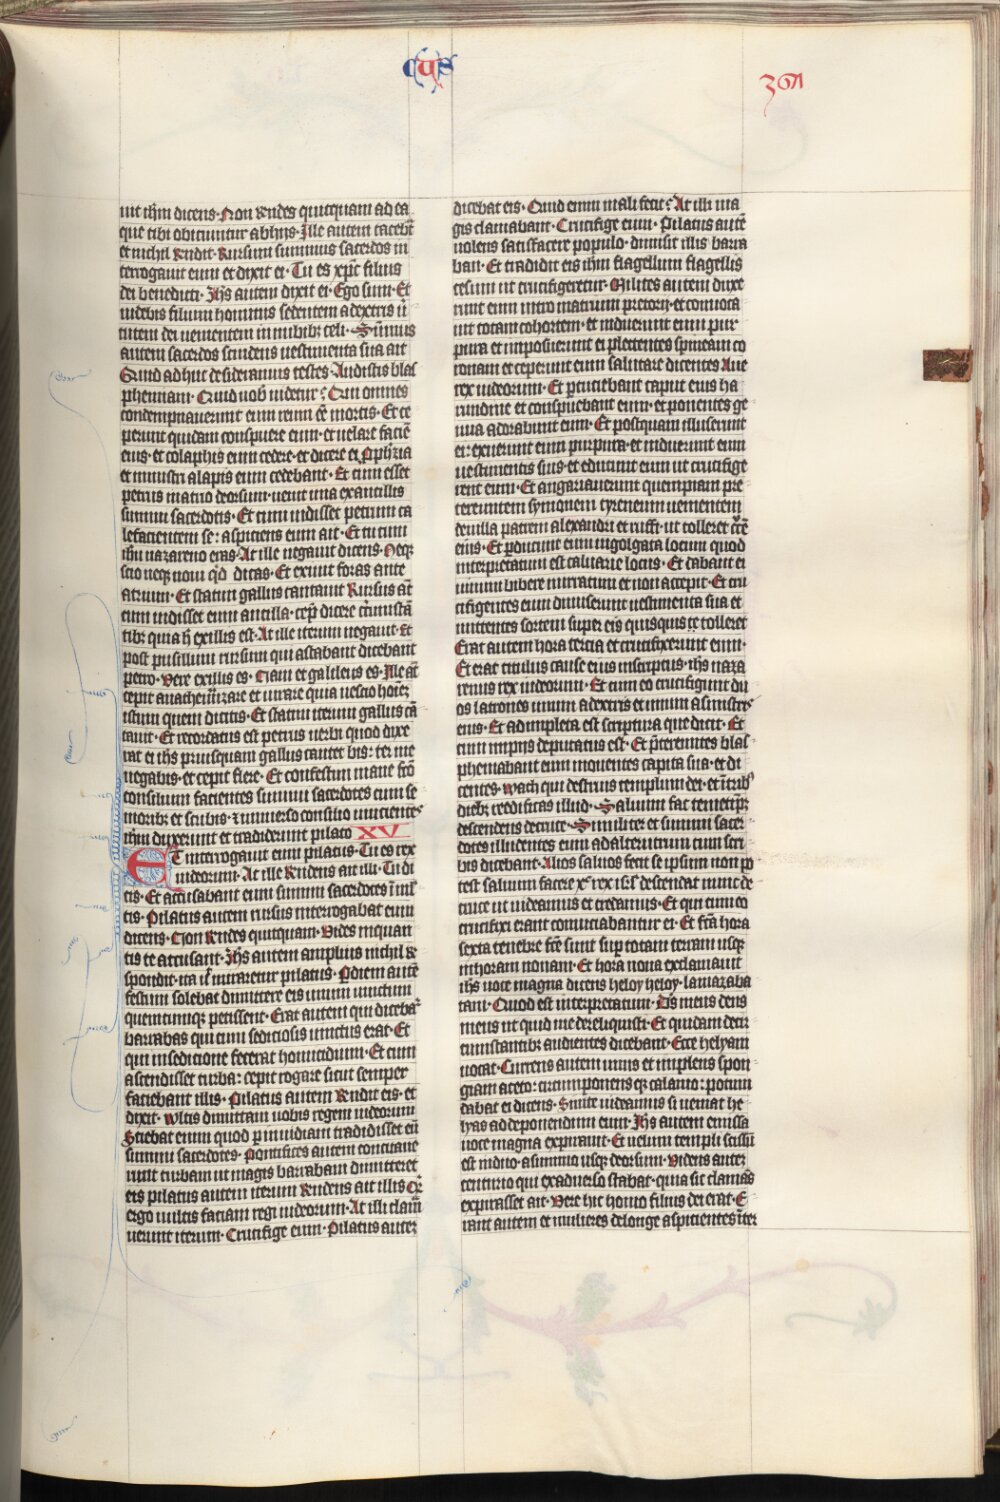 cus
367
uit ihm dicens· Non Rndes quicquam ad ea
que tibi obiciuntur ab hijs· Ille autem tacebat
et nichil Rndit· Rursum summus sacerdos in
terrogauit eum et dixit ei· Tu es xpc filius
dei benedicti· Ihs autem dixit ei· Ego sum· Et
uidebis filium hominis sedentem adextris ū
tutem dei uenientem in nubibz celi· Sūmus
autem sacerdos scindens uestimenta sua ait
Quid adhuc desideramus testes· Audistis blas
phemiam· Quid uob uidetur; Qui omnes
condempnauerunt eum reum eē mortis· Et ce
perunt quidam conspuere eum· et uelare faciē
eius· et colaphis eum cedere· et dicere ei pphzia
et ministri alapis eum cedebant· Et cum esset
petrus in atrio deorsum· uenit una ex ancillis
summi sacerdotis· Et cum uidisset petrum ca
lefacientem se: aspiciens eum ait· Et tu cum
ihu nazareno eras· At ille negauit dicens· Neqz
scio neqz noui qd dicas· Et exiuit foras ante
atrium· Et statim gallus cantauit Rursus at
cum uidisset eum ancilla· cep dicere cumstā
tibz quia h̄ ex illis est· At ille iterum negauit· Et
post pusillum rursum qui astabant dicebant
petro· Vere ex illis es· Nam et galileus es· Ille at
cepit anathematizare et iurare quia nescio hoiez
istum quem dicitis· Et statim iterum gallus cā
tauit· Et recordatus est petrus uerbi quod dixe
rat ei ihs priusquam gallus cantet bis: ter me
negabis· et cepit flere· Et confestim mane fcō
consilium facientes summi sacerdotes cum se
nioribz et scribis· et uniuerso consilio uincientes
ihm duxerunt et tradiderunt pilato XV
ET interrogauit eum pilatus· Tu es rex
iudeorum· At ille Rndens ait illi· Tu di
cis· Et accusabant eum summi sacerdotes ī mlt
tis· Pilatus autem rursus interrogabat eum
dicens· Non Rndes quicquam· Vides in quan
tis te accusant· Ihs autem amplius nichil R
spondit· ita ut miraretur pilatus· P diem autē
festum solebat dimittere eis unum uinctum
quemcumqz petissent· Erat autem qui dicebat
barrabas qui cum sediciosis uinctus erat· Et
qui in sedicione fecerat homicidium· Et cum
ascendisset turba: cepit rogare sicut semper
faciebant illis· Pilatus autem Rndit eis· et
dixit· Wltis dimittam uobis regem iudeorum
Sciebat enim quod p inuidiam tradidisset eū
summi sacerdotes· Pontifices autem concitaue
runt turbam ut magis barraban dimitteret
eis pilatus autem iterum Rndens ait illis Qz
ergo uultis faciam regi iudeorum· At illi clam
uerunt iterum· Crucifige eum· Pilatus autez
dicebat eis· Quid enim mali fecit; At illi ma
gis clamabant· Crucifige eum· Pilatus autē
uolens satisfacere populo· dimisit illis barra
ban· Et tradidit eis ihm flagellum flagellis
cesum ut crucifigeretur· Milites autem duxe
runt eum intro in atrium pretorij· et conuoca
nt totam cohortem· et induerunt eum pur
pura et imposuerunt ei plectentes spineam co
ronam et ceperunt eum salutare dicentes Aue
rex iudeorum· Et pcutiebant caput eius ha
rundine et conspuebant eum· et ponentes ge
nua adorabunt eum· Et postquam illuserunt
ei: exuerunt eum purpura· et induerunt eum
uestimentis suis· et educunt eum ut crucifige
rent eum· Et angariauerunt quempiam pre
tereuntem symonem cyreneum uenientem
de uilla patrem alexandri et ruffi· ut tolleret cr̄cē
eius· Et pducunt eum in golgata locum quod
interpretatum est caluarie locus· Et dabant ei
uinum bibere mirratum et non accepit· Et cru
cifigentes eum diuiserunt uestimenta sua et
mittentes sortem super eis quisquis te tolleret
Erat autem hora tercia et crucifixerunt eum·
Et erat titulus cause eius inscriptus· ihs naza
renus rex iudeorum· Et cum eo crucifigunt du
os latrones unum adextris et unum asinistris
eius· Et adimpleta est scriptura que dicit· Et
cum iniquis deputatus est· Et p̄tereuntes blas
phemabant eum mouentes capita sua· et di
centes· wach qui destruis templum dei· et ī tribs
diebz reedificas illud· Saluum fac temetipz
descendens de cruce· Similiter et summi sacer
dotes illudentes eum ad alterutrum cum scri
bis dicebant· Alios saluos fecit se ipsum non po
test saluum facere xc rex isrl descendat nunc de
cruce ut uideamus et credamus· Et qui cum eo
crucifixi erant conuiciabantur ei· Et fcā hora
sexta tenebre fcē sunt sup totam terram usqz
in horam nonam· Et hora nona exclamauit
ihs uoce magna dicens heloy heloy· lamazaba
tani· Quod est interpretatum· Ds meus deus
meus ut quid me dereliquisti· Et quidam decir
cumstantibz audientes dicebant· Ecce helyam
uocat· Currens autem unus et implens spon
giam aceto: circumponens qz calamo: potum
dabat ei dicens· Sinite uideamus si ueniat he
lyas ad deponendum eum· Ihs autem emissa
uoce magna expirauit· Et uelum templi scissū
est in duo· a summo usqz deorsum· Videns autez
centurio qui ex aduerso stabat· quia sic clamās
expirasset ait· Vere hic homo filius dei erat· E
rant autem et mulieres delonge aspicientes īter